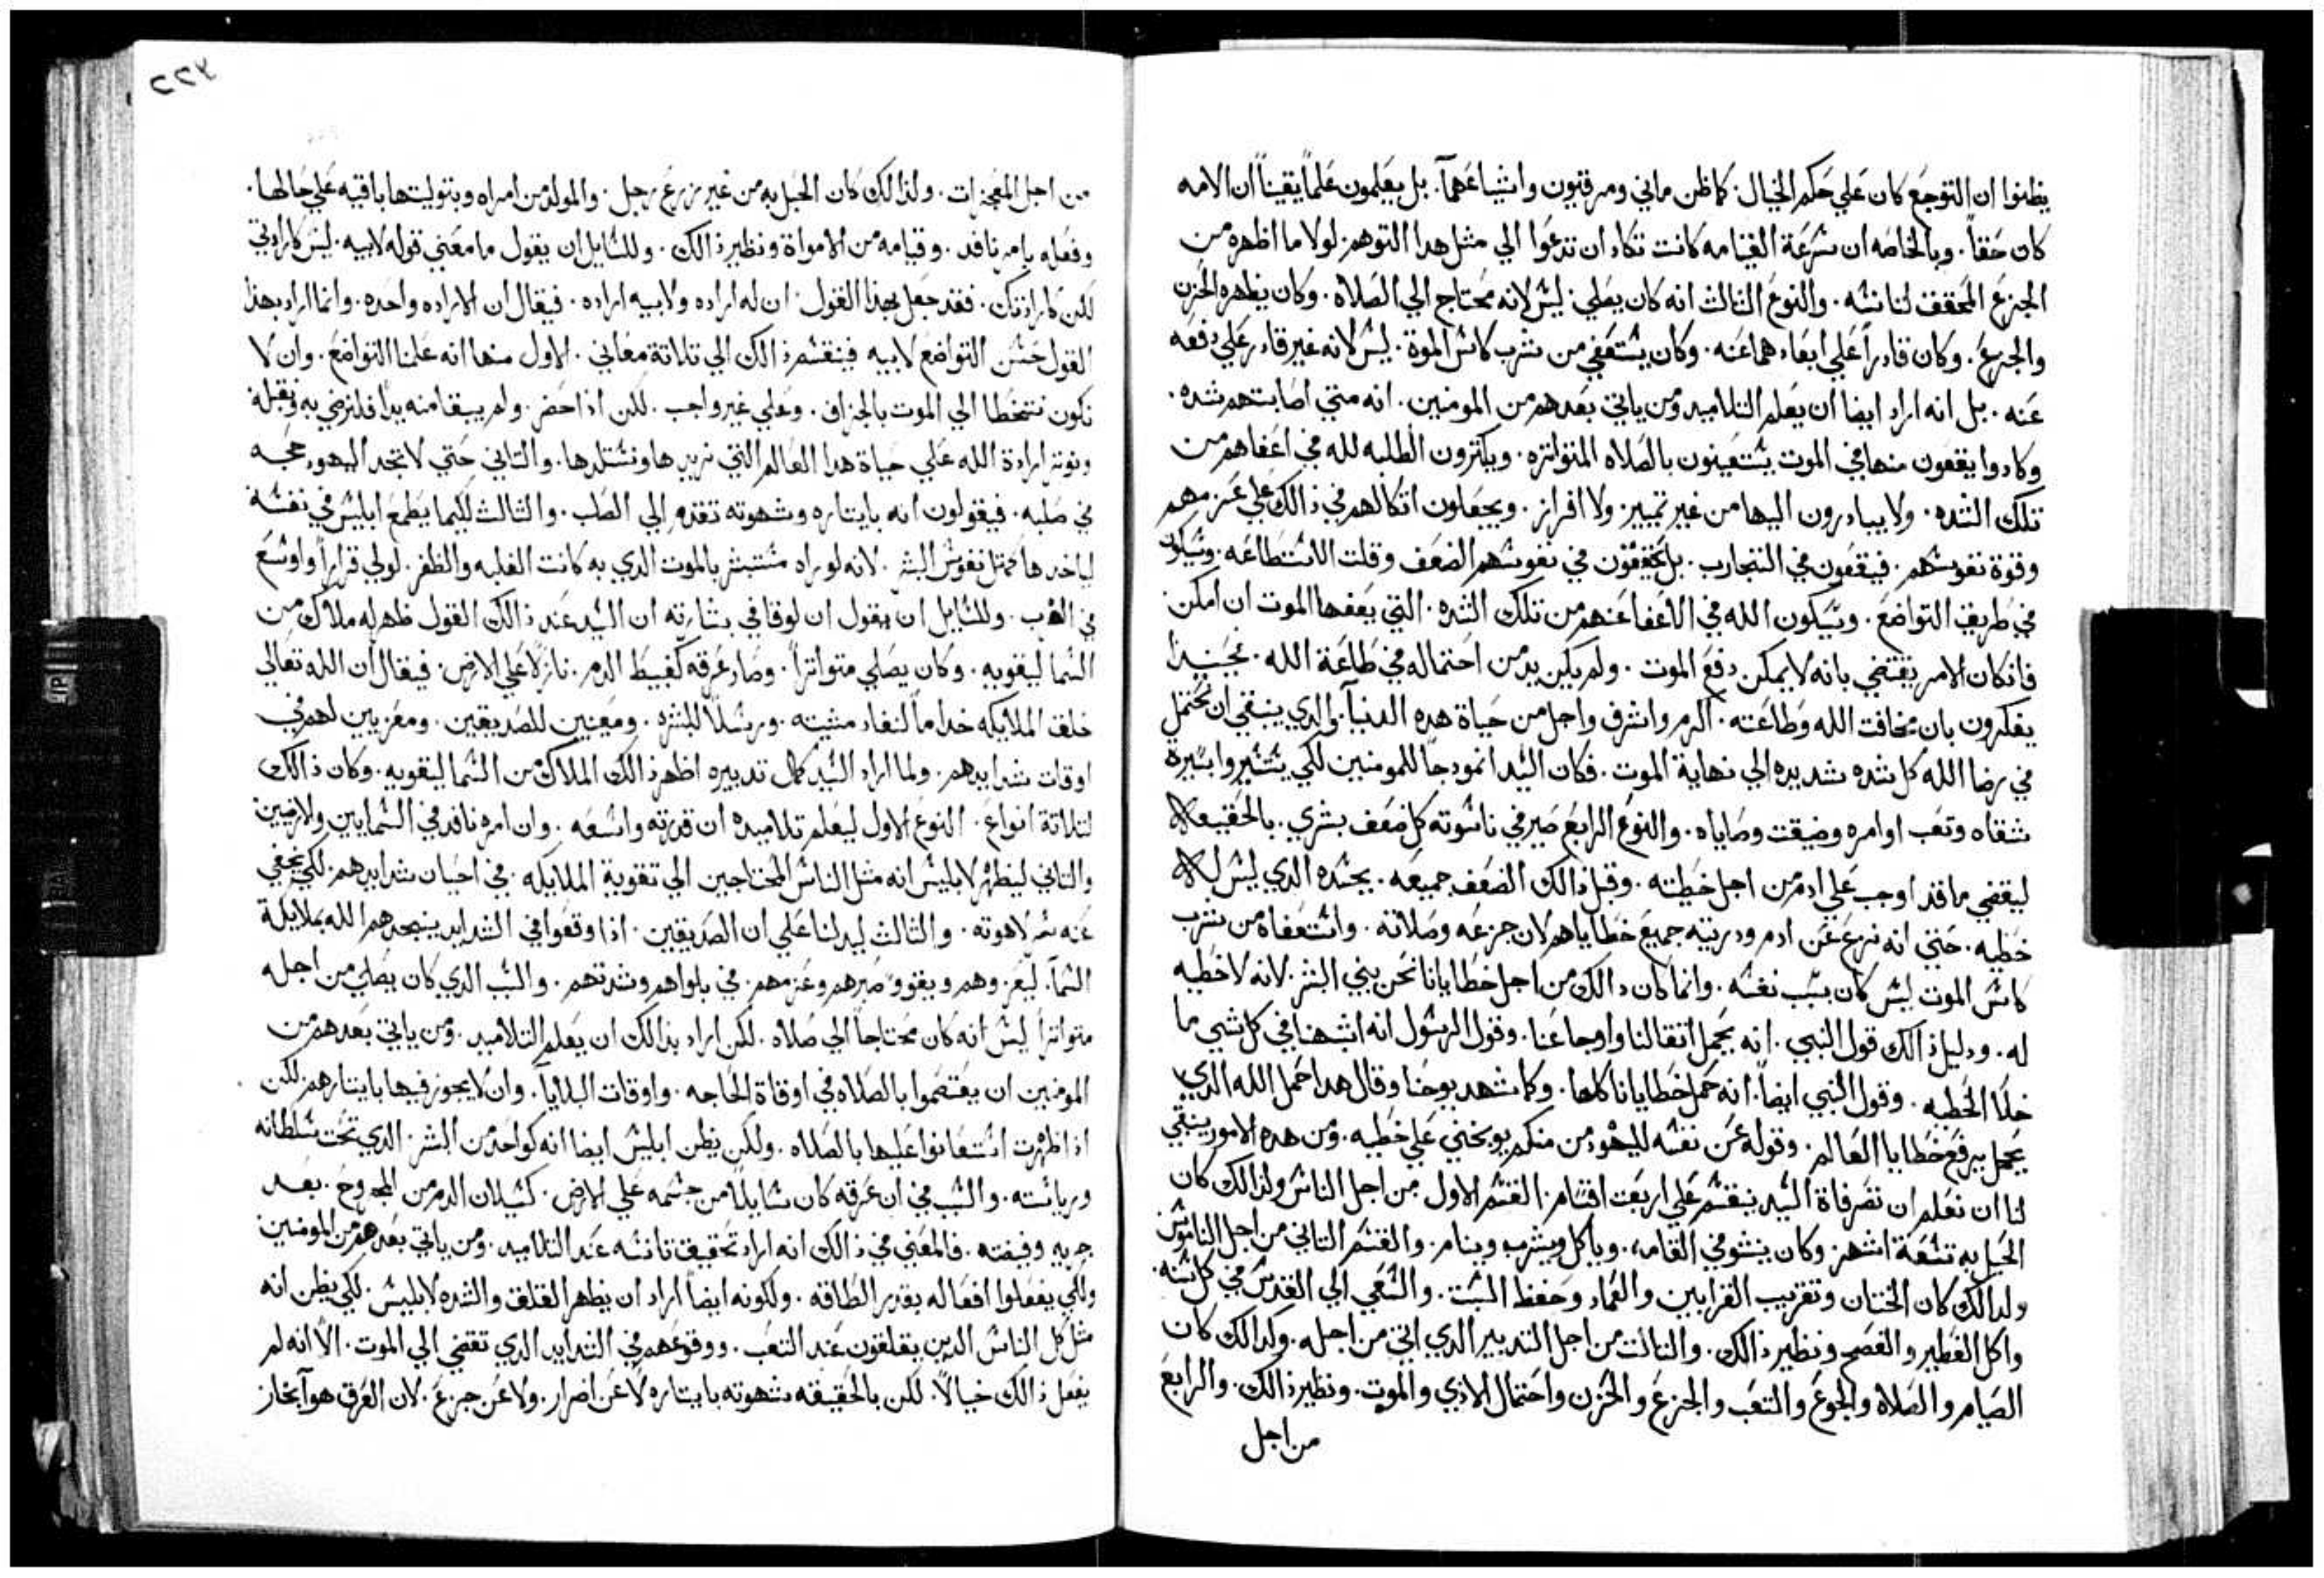 يظنوا ان التوجع كان علي حكم الخيال. كما ظن ماني ومرقيون واشياعهما. بل يعلمون علماً يقيناً ان الامه
كان حقاً. وبالخاصه ان سرعة القيامه كانت تكاد ان تدعوا الي مثل هدا التوهم. لولا ما اظهره من
الجزع المحقق لناسنه. والنوع التالت انه كان يصلي. ليس لانه محتاج الي الصلاه. وكان يظهر الحزن
والجزع. وكان قادراً علي ابعادهما عنه. وكان يستعفي من شرب كاس الموة. ليس لانه غير قادر علي دفعه
عنه. بل انه اراد ايضا ان يعلم التلاميد ومن ياتي بعدهم من المومنين. انه متي اصابتهم شده.
وكادوا يقعون منها في الموت يستعينون بالصلاه المتواتره. ويكترون الطلبه لله في اعفاهم من
تلك الشده. ولا يبادرون اليها من غير تمييز. ولا افراز. ويجعلون اتكالهم في ذالك علي عزمهم
وقوة نفوسهم. فيقعون في التجارب. بل يحققون في نفوسهم الضعف وقلت الاستطاعه. ويسكون
في طريق التواضع. ويسكون الله في الاعفا عنهم من تلك الشده. التي يعفها الموت ان امكن.
فانكان الامر يقتضي بانه لا يمكن دفع الموت. ولم يكن بد من احتماله في طاعة الله. فحينيدا
يفكرون بان مخافت الله وطاعته. اكرم واشرف واجل من حياة هده الدنيا. والدي ينبغي ان نحتمل
في رضا الله كل شده شديده الي نهاية الموت. فكان السيد انمودجاً للمومنين لكي يسيروا بسيرة
شقاه وتعب اوامره وضيقت وصاياه. والنوع الرابع صير في ناسوته كل ضعف بشري. بالحقيقه لا
ليقضي ما قد اوجب علي ادم من اجل خطيته. وقبل ذالك الضعف جميعه. بجسده الدي ليس له
خطيه. حتي انه نزع عن ادم ودريته جميع خطاياهم لان جزعه وصلاته. واستعفاه من شرب
كاس الموت ليس كان بسبب نفسه. وانما كان دالك من اجل خطايانا نحن بني البشر. لانه لا خطيه
له. ودليل ذالك قول النبي. انه يحمل اتقالنا واوجاعنا. وقول الرسول انه اشبهنا في كل شي ما
خلا الخطيه. وقول النبي ايضاً. انه حمل خطايانا كلها. وكما شهد يوحنا وقال هدا حمل الله الدي
يحمل يرفع خطايا العالم. وقوله عن نفسه لليهود من منكم يوبخني علي خطيه. ومن هده الامور ينبغي
لنا ان نعلم ان تصرفاة السيد ينقسم علي اربعت اقسام. القسم الاول من اجل الناس ولدالك كان
الحبل به تسعة اشهر. وكان ينشو في القامه. وياكل ويشرب وينام. والقسم التاني من اجل الناموس
ولدالك كان الختان وتقريب القرابين والعماد وحفظ السبت. والسعي الي القدس في كل سنه.
واكل الفطير والفصح ونظير ذالك. والتالت من اجل التدبير الدي اتي من اجله. وكدالك كان
الصيام والصلاه والجوع والتعب والجزع والحزن واحتمال الادي والموت. ونظير ذالك. والرابع
من اجل
٢٢٣
من اجل المعجزات. ولذالك كان الحبل به من غير زرع رجل. والمولد من امراه وبتوليتها باقيه علي حالها.
وفعله بامر نافد. وقيامه من الامواة ونظير ذالك. وللسايل ان يقول ما معني قوله لابيه. ليس كارادتي
لكن كارادتك. فقد جعل بهذا القول. ان له اراده ولابيه اراده. فيقال ان الاراده واحده. وانما اراد بهذا
القول حسن التواضع لابيه فينقسم ذالك الي تلاتة معاني. الاول منها انه علمنا التواضع. وان لا
نكون نتخطا الي الموت بالجزاف. وعلي غير واجب. لكن اذا حضر. ولم يبقا منه بداً فلنرضي به ونقبله
ونوتر ارادة الله علي حياة هدا العالم التي نريدها ونستلدها. والتاني حتي لا تجد اليهود حجه
في صلبه. فيقولون انه بايتاره وشهوته تقدم الي الصلب. والتالث لكيما يطمع ابليس في نفسه
لياخدها كمتل نفوس البشر. لانه لو راه مستبشر بالموت الدي به كانت الغلبه والظفر. لولي فراراً واوسع
في الهرب. وللسايل ان يقول ان لوقا في بشارته ان السيد عند ذالك القول ظهر له ملاك من
السما ليقويه. وكان يصلي متواتراً. وصار عرقه كغبيط الدم. نازلاً علي الارض. فيقال ان الله تعالي
خلق الملايكه خداماً لنفاد مشيته. ورسلاً للبشر. ومعينين للصديقين. ومعزيين لهم في
اوقات شدايدهم. ولما اراد السيد كمال تدبيره اظهر ذالك الملاك من السما ليقويه. وكان ذالك
لتلاتة انواع. النوع الاول ليعلم تلاميده ان قدرته واسعه. وان امره نافد في السمايين والارضيين
والتاني ليظهر لابليس انه مثل الناس المحتاجين الي تقوية الملايكه. في احيان شدايدهم. لكي يخفي
عنه سر لاهوته. والتالث ليدلنا علي ان الصديقين. اذا وقعوا في الشدايد ينجدهم الله بملايكة
السما. ليعزوهم ويقووا صبرهم وعزمهم. في بلواهم وشدتهم. والسبب الدي كان يصلي من اجله
متواتراً ليس انه كان محتاجاً الي صلاه. لكن اراد بذالك ان يعلم التلاميد. ومن ياتي بعدهم من
المومنين ان يعتصموا بالصلاه في اوقاة الحاجه. واوقات البلايا. وان لا يجوز فيها بايتارهم. لكن
اذا ظهرت استعانوا عليها بالصلاه. ولكن يظن ابليس ايضا انه كواحد من البشر. الدي تحت سلطانه
ورياسته. والسبب في ان عرقه كان سايلاً من جسمه علي الارض. كسيلان الدم من المجروح. بعد
جريه وفيضه. فالمعني في ذالك انه اراد تحقيق تانسه عند التلاميد. ومن ياتي بعدهم من المومنين
ولكي يفعلوا افعاله بقدر الطاقه. ولكونه ايضاً اراد ان يظهر القلق والشده لابليس. لكي يظن انه
مثل كل الناس الدين يقلقون عند التعب. ووقوعهم في الشدايد الدي تقضي الي الموت. الا انه لم
يفعل ذالك خيالاً. لكن بالحقيقه شهوته بايتاره لا عن اضرار. ولا عن جزع. لان العرق هو بخار